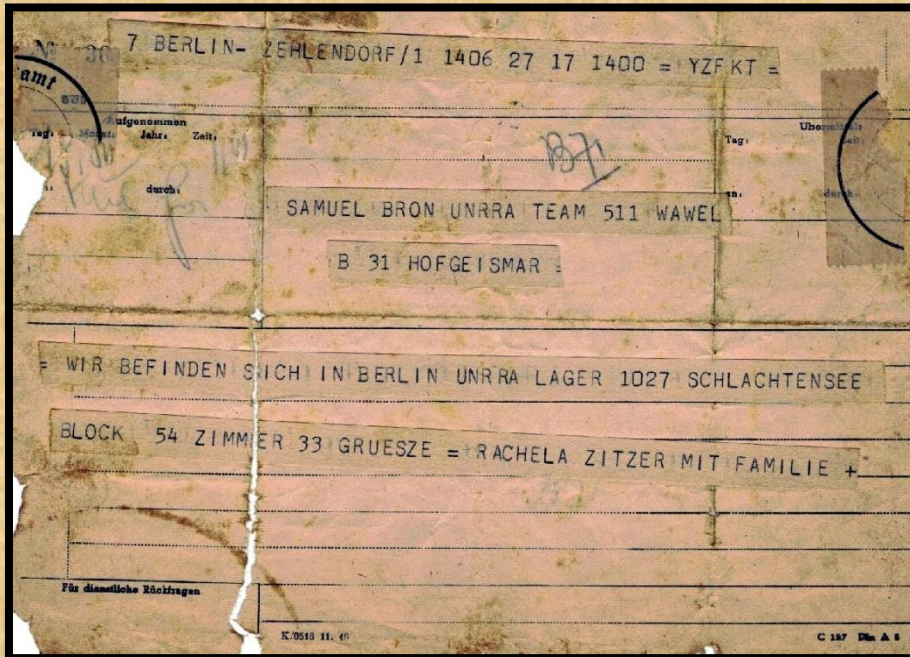 7 BERLIN- ZEHLENDORF/1 1406 27 17 1400 = YZFKT =
amt
Aufgenommen
Tag: Monat: Jahr: Zeit:
durch:
Übermittelt
Tag: Zeit:
an: durch:
SAMUEL BRON UNRRA TEAM 511 WAWEL
B 31 HOFGEISMAR =
= WIR BEFINDEN SICH IN BERLIN UNRRA LAGER 1027 SCHLACHTENSEE
BLOCK 54 ZIMMER 33 GRUESZE = RACHELA ZITZER MIT FAMILIE +
Für dienstliche Rückfragen
K/0516 11. 46
C 187 Din A 5